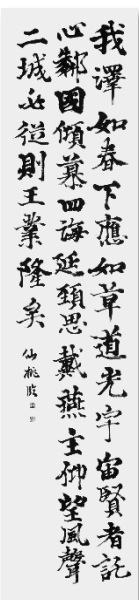 我澤如春下應如草道光宇宙賢者託
心鄰國傾慕四海延頸思戴燕主仰望風聲
二城必從則王業隆矣
仙桃波